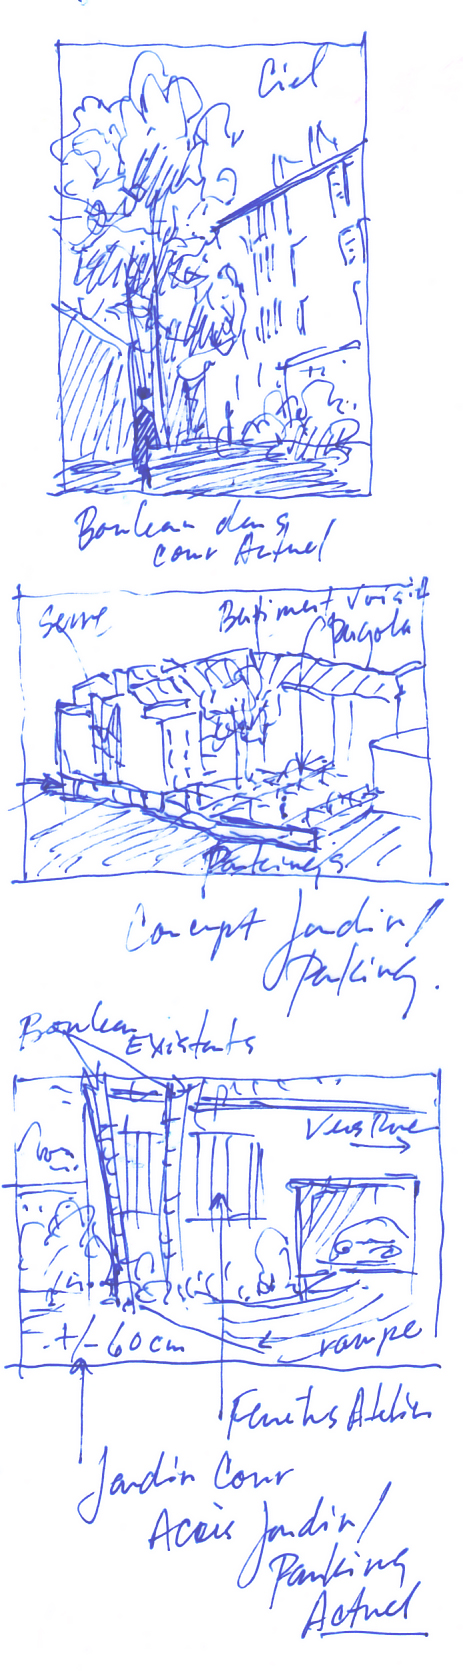 Ciel
Bouleau dans
cour Actuel
Serre
Batiment Voisin
Pergola
Parkings
Concept Jardin/
Parking.
Bouleau
Existants
Vers Rue
+/- 60 cm
rampe
Fenetres Atelier
Jardin Cour
Accès Jardin/
Parking
Actuel